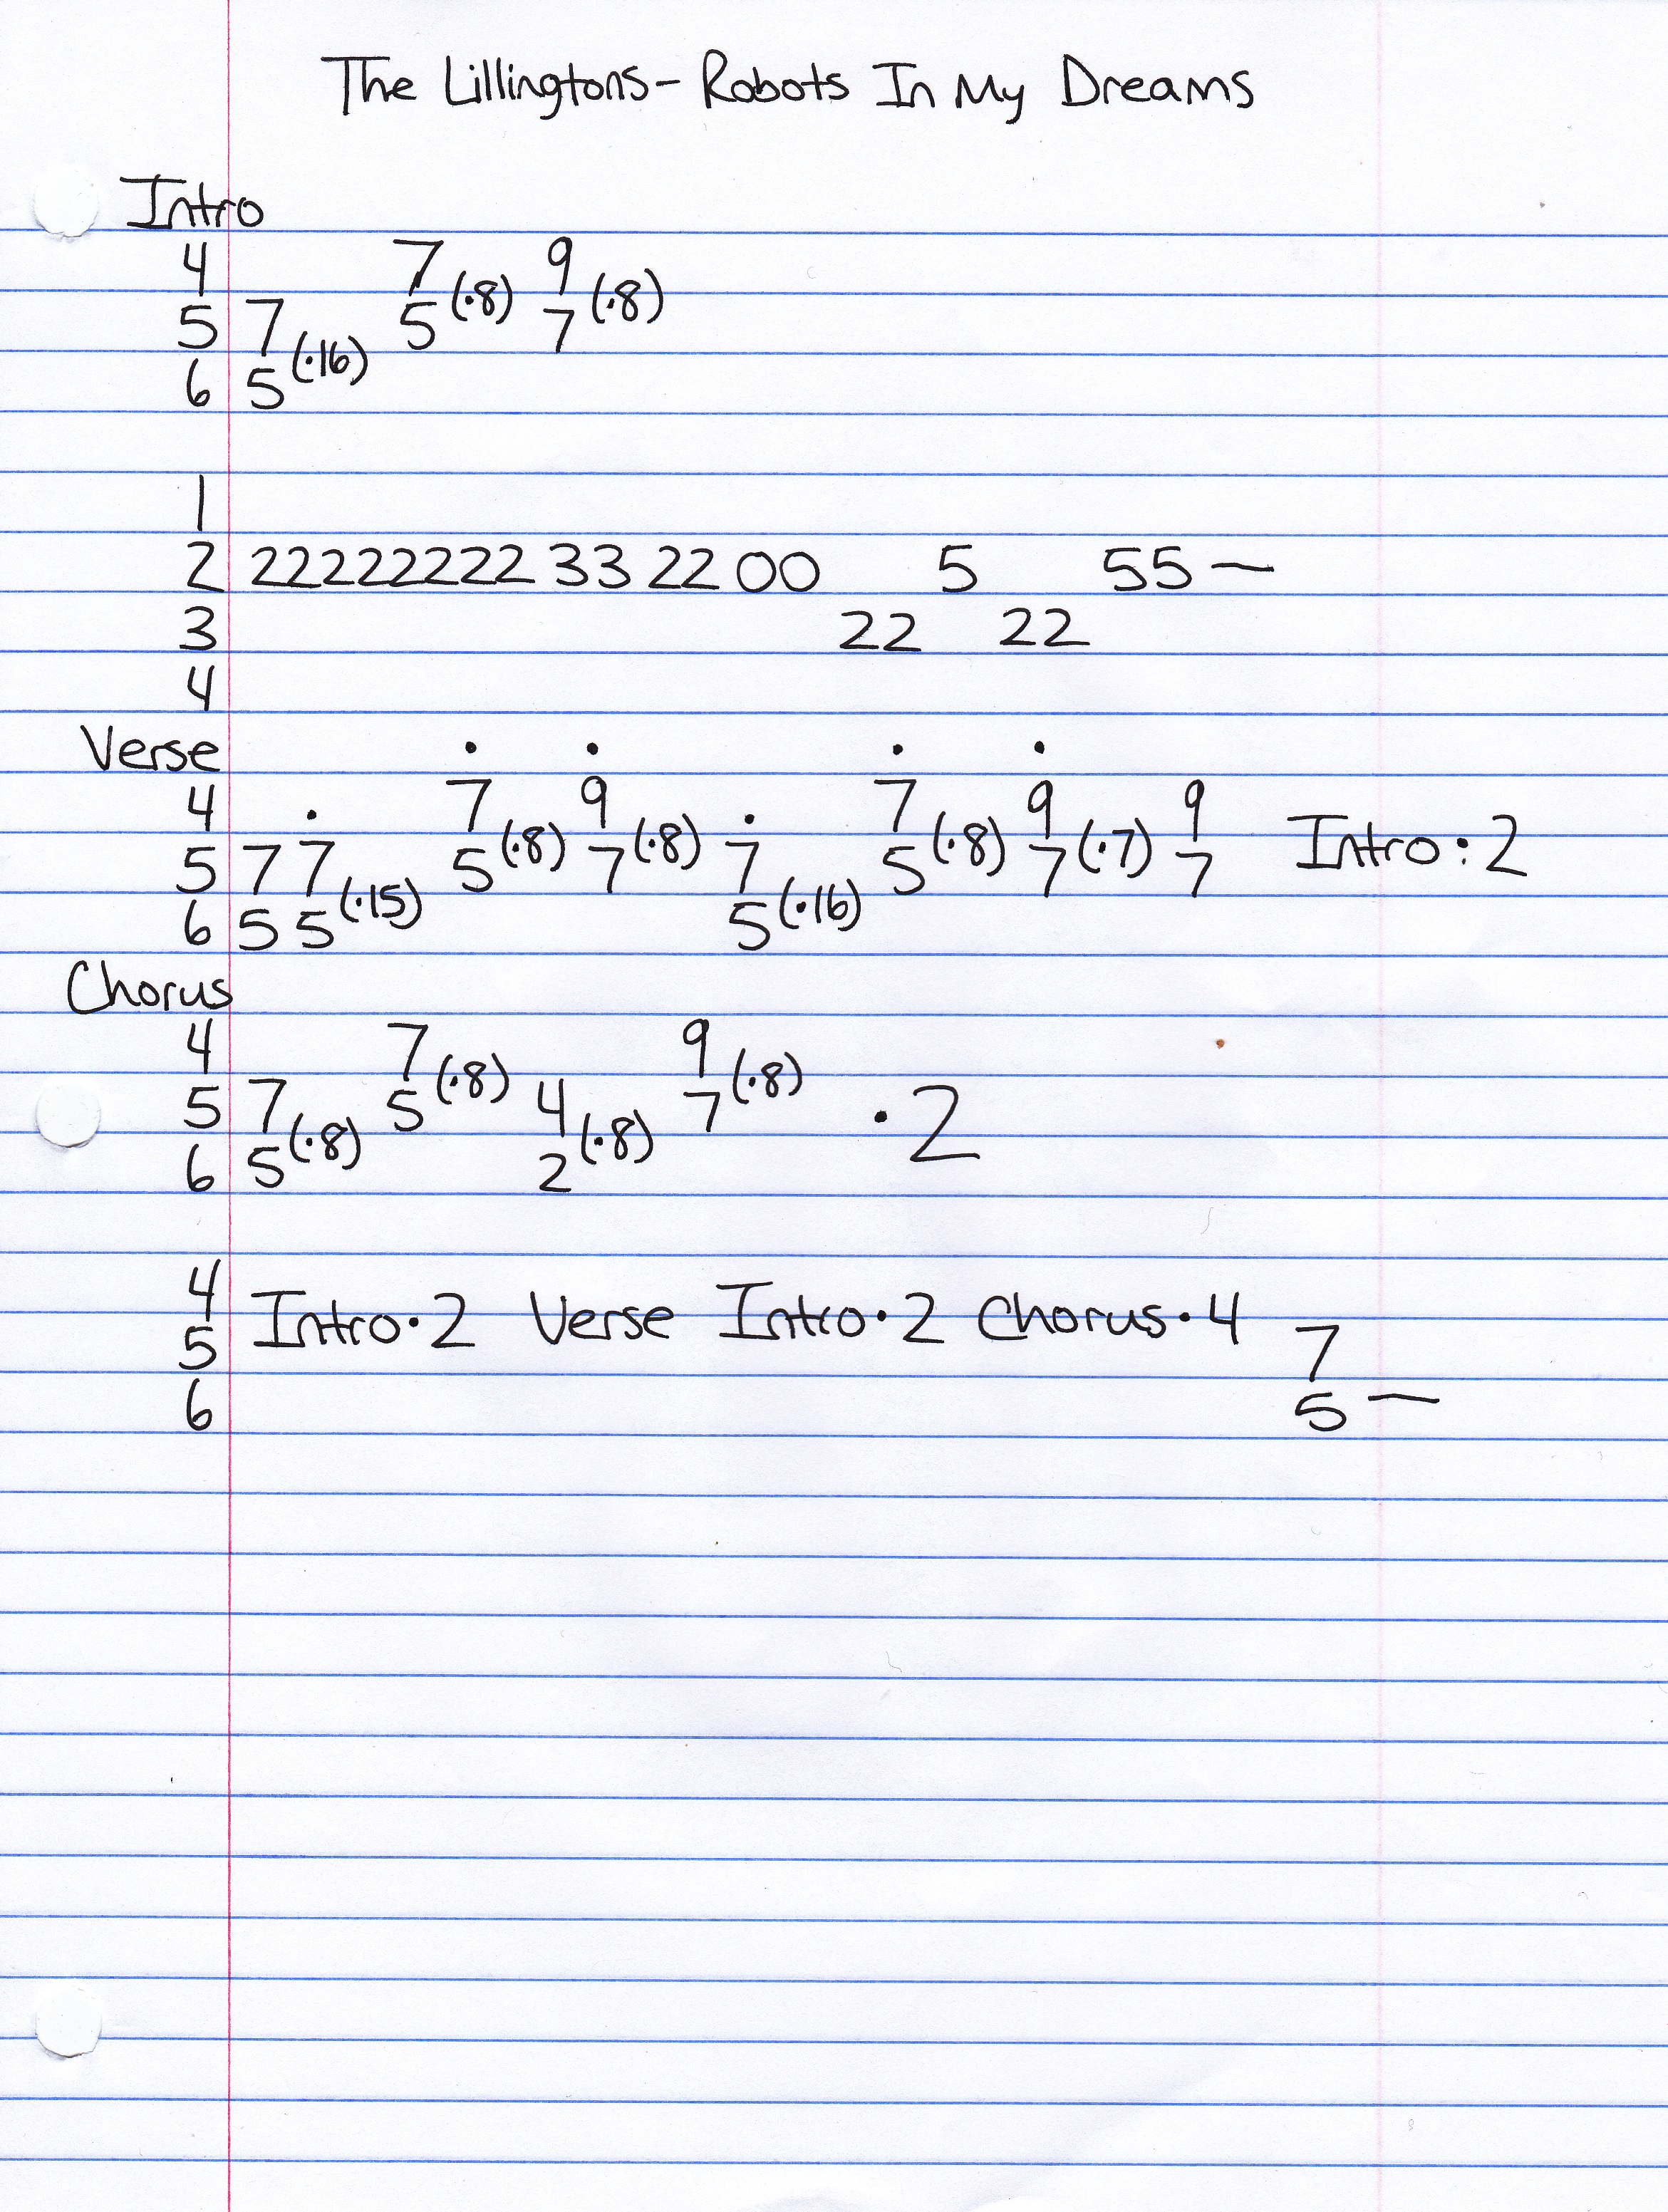 The Lillingtons - Robots In My Dreams
Intro
4 7 (·8) 9 (·8)
5 7 (·16) 5 7
6 5
1
2 22222222 33 22 00 5 55 —
3 22 22
4
Verse · · · ·
4 · 7 9 · 7 9 9
5 7 7 (·15) 5 (·8) 7 (·8) 7 (·16) 5 (·8) 7 (·7) 7 Intro · 2
6 5 5 5
Chorus
4 7 (·8) 9 (·8)
5 7 (·8) 5 4 (·8) 7 · 2
6 5 2
4 Intro · 2 Verse Intro · 2 Chorus · 4
5 7
6 5 —